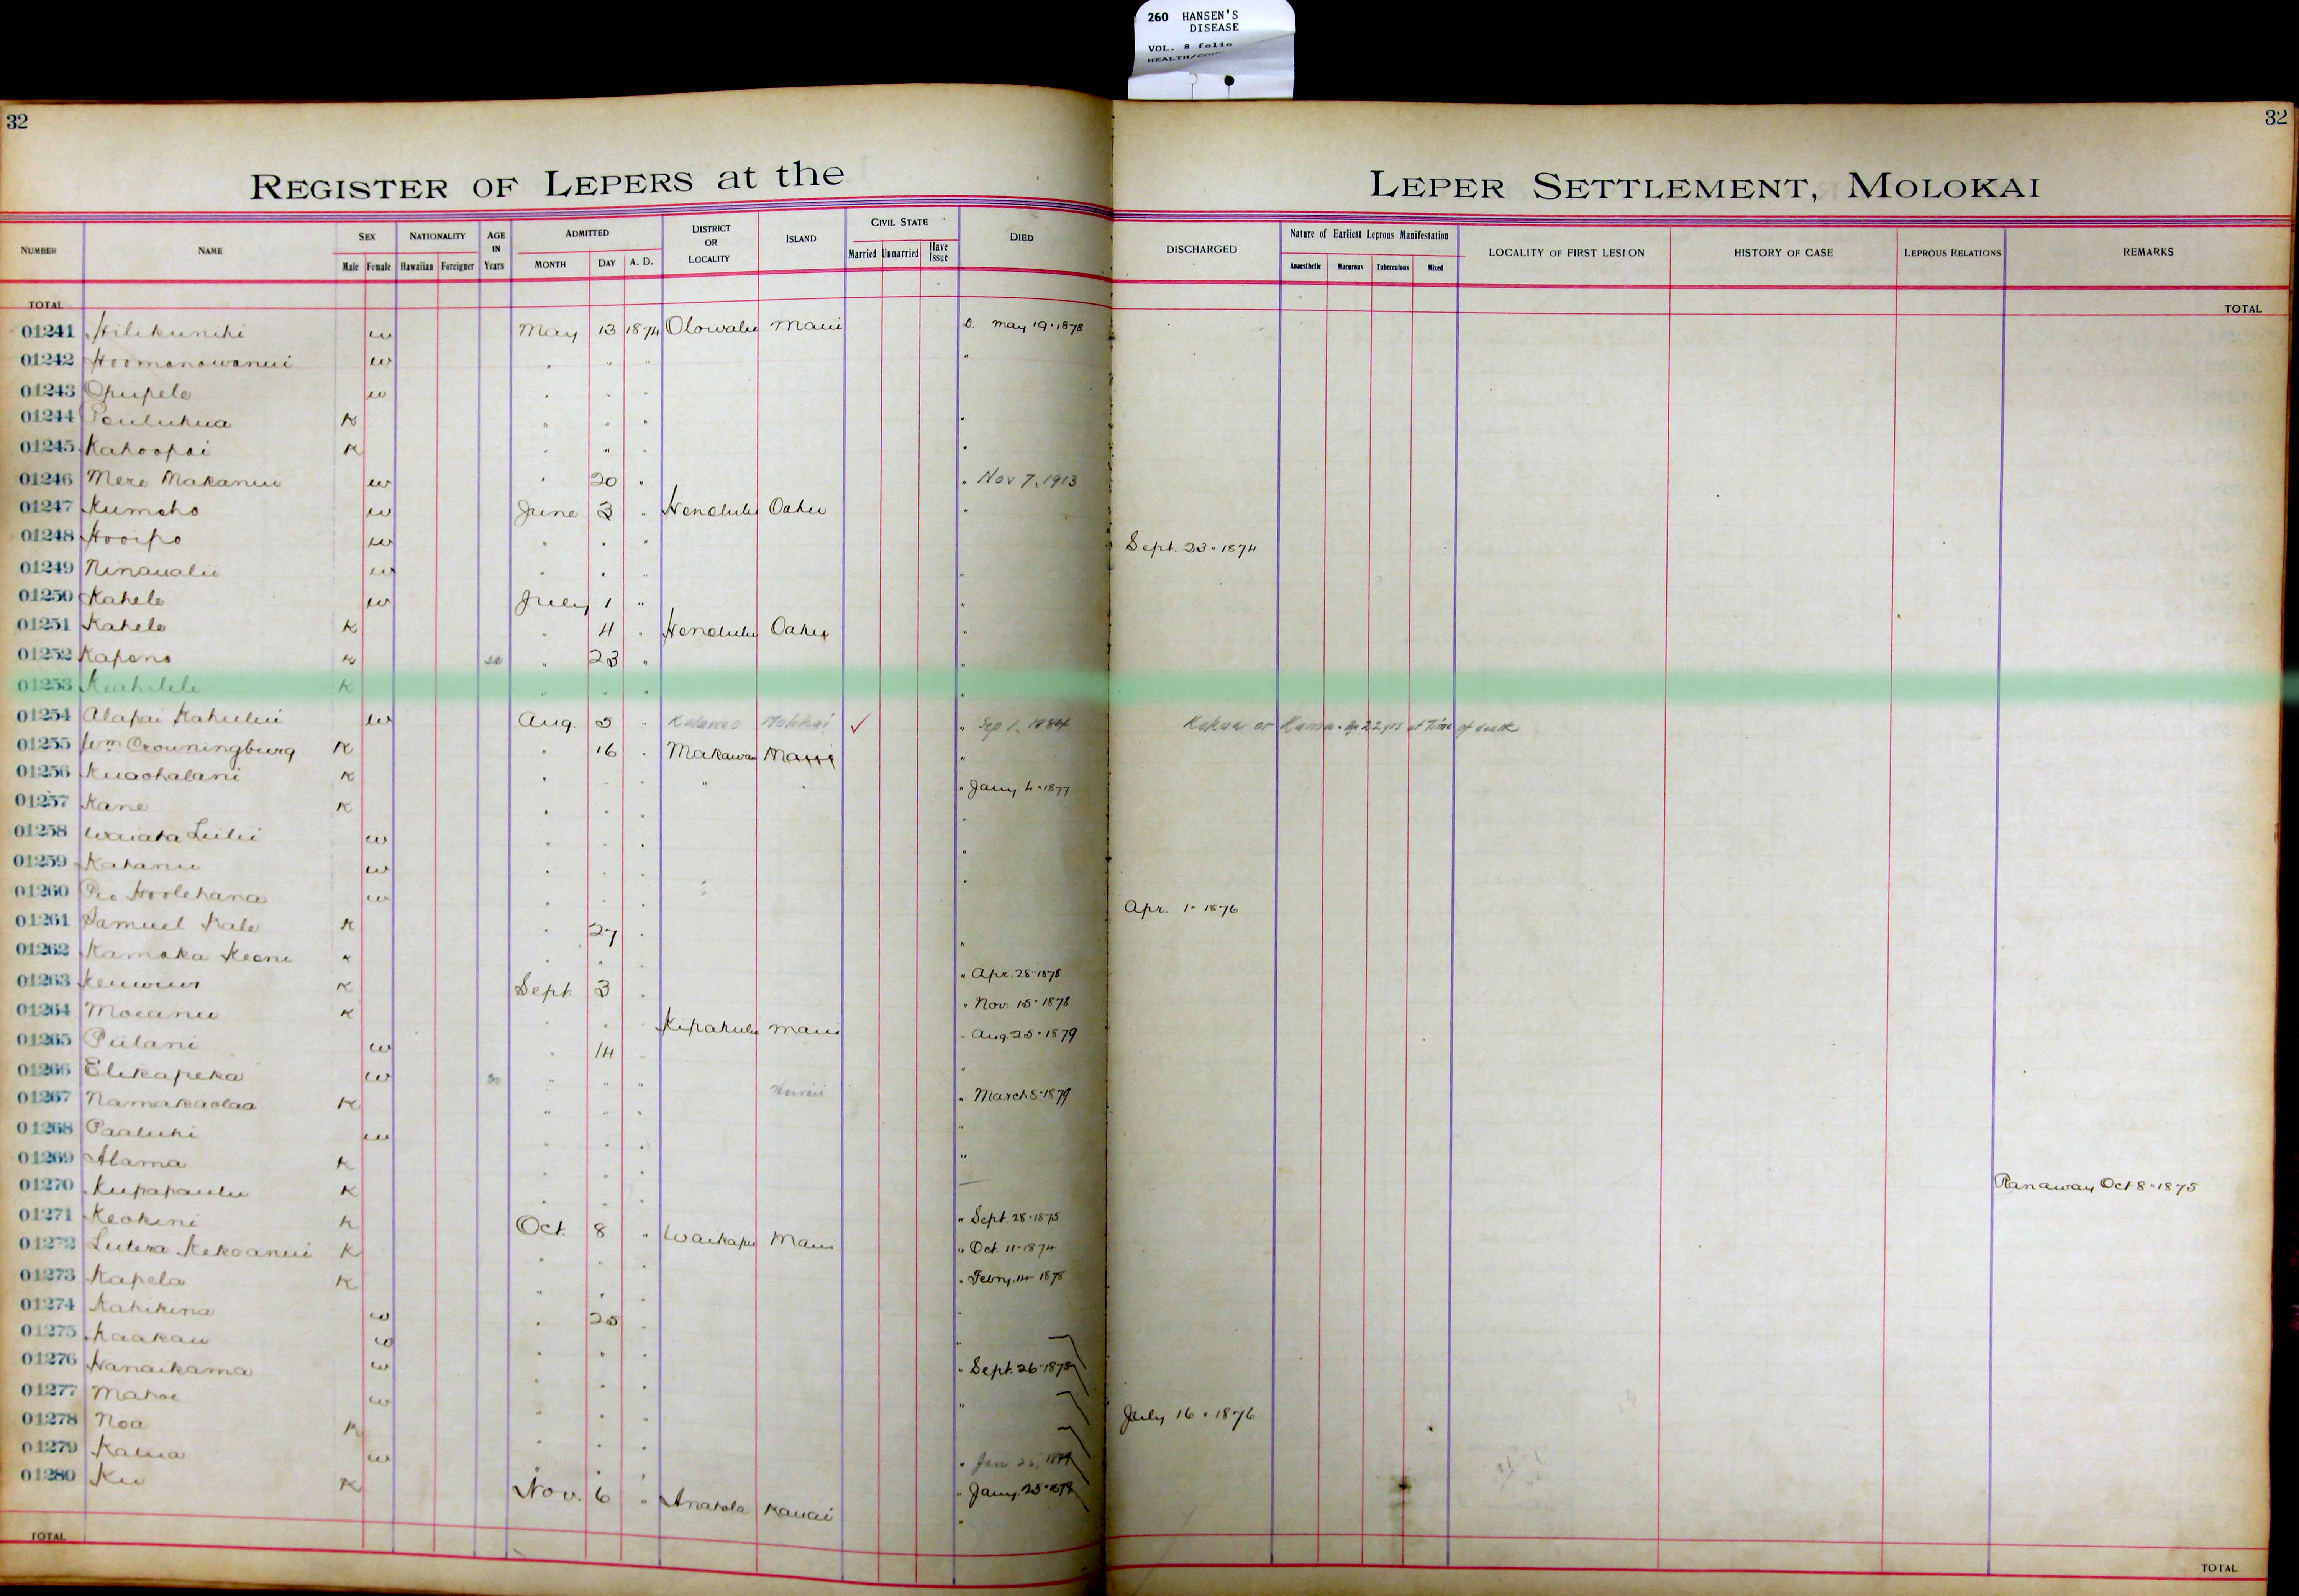 260 HANSEN'S
DISEASE
VOL. 8 folio
32
32
REGISTER OF LEPERS at the LEPER SETTLEMENT, MOLOKAI
NUMBER NAME SEX Male Female NATIONALITY Hawaiian Foreigner AGE IN Years ADMITTED MONTH DAY A. D. DISTRICT OR LOCALITY ISLAND CIVIL STATE Married Unmarried Have Issue DIED DISCHARGED Nature of Earliest Leprous Manifestation Anaesthetic Macurous Tuberculous Mixed LOCALITY OF FIRST LESION HISTORY OF CASE LEPROUS RELATIONS REMARKS
TOTAL TOTAL
01241 Hilikunihi w May 13 1874 Olowalu Maui D. May 19 · 1878
01242 Hoomanawanui w " " " "
01243 Opupele w " " "
01244 Pauluhua K " " " "
01245 Kahoopai K " " " "
01246 Mere Makanui w " 20 " " Nov 7, 1913
01247 Kumeho w June 3 " Honolulu Oahu "
01248 Hooipo w " " " Sept. 23 · 1874
01249 Ninaualu w " " " "
01250 Kahele w July 1 " "
01251 Kahele K " 4 " Honolulu Oahu "
01252 Kapono K " 23 " "
01253 Keahilele K " " " "
01254 Alapai Kahului w Aug. 5 " Kalawao Molokai ✓ " Sep 1, 1884 Kokua or Kamaa. Age 22 yrs at Time of death
01255 Wm Crowningburg K " 16 " Makawao Maui "
01256 Kuaohalani K " " " " " " Jany. 4 · 1877
01257 Kane K " " " "
01258 Waiata Luilii w " " " "
01259 Kahanu w " " " "
01260 Pio Hoolehana w " " " Apr. 1 · 1876
01261 Samuel Kale K " 27 " "
01262 Kamaka Keoni K " " " " Apr. 28 · 1878
01263 K Sept 3 " " Nov. 15 · 1878
01264 Moeanu K " " " Kipahulu Maui " Aug 25 · 1879
01265 Piilani w " 14 " "
01266 Elikapeka w 30 " " " Hawaii " March 8 · 1879
01267 Namakaolaa K " " " "
01268 Paaluhi w " " " "
01269 Alama K " " "
01270 Kupapaulu K " " " Ranaway Oct 8 · 1875
01271 Keokini K Oct. 8 " Waikapu Maui " Sept. 28 · 1875
01272 Lutera Kekoanui K " " " " Oct. 11 · 1874
01273 Kapela K " " " " Febry. 14 1878
01274 Kahikina w " 25 " "
01275 Kaakau w " " " "
01276 Hanaikama w " " " " Sept. 26 · 1878
01277 Mahoe w " " " "
01278 Noa K " " " July 16 · 1876
01279 Kalua w " " " " Jan 26,
01280 Ku K Nov. 6 " Anahola Kauai " Jany. 25 ·
TOTAL TOTAL